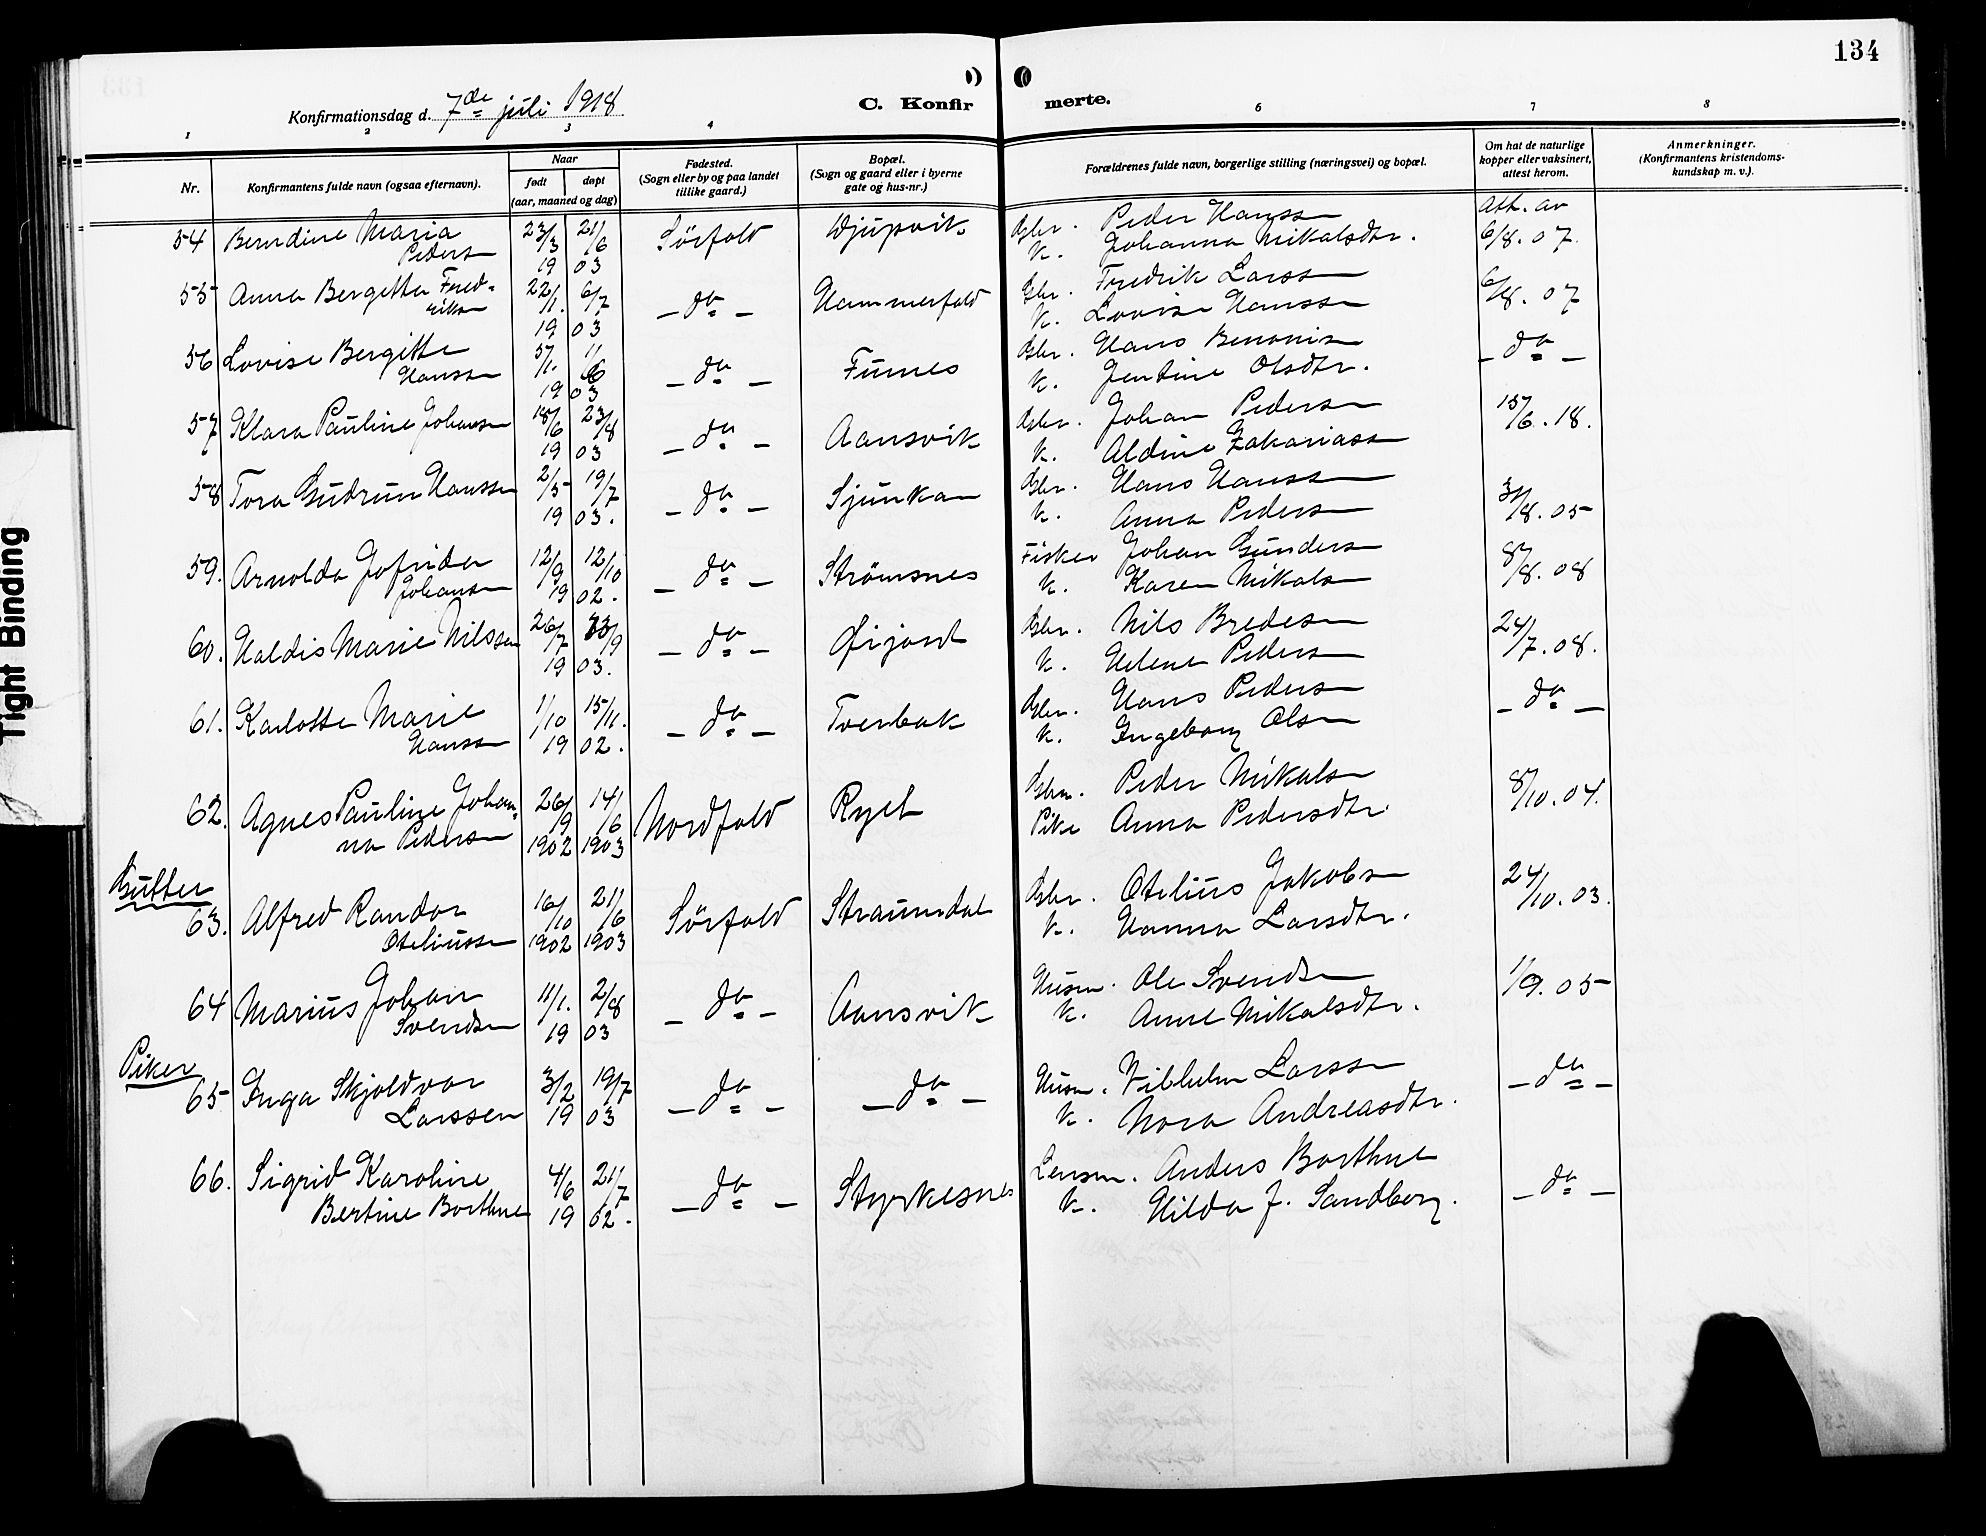 134
Konfirmationsdag d. 7de juli 1918
C. Konfir
merte.
1 2 3 4 6 7 8
Nr.
Konfirmantens fulde navn (ogsaa efternavn).
Naar
født døpt
(aar, maaned og dag)
Fødested.
(Sogn eller by og paa landet
tillike gaard.)
Bopæl.
(Sogn og gaard eller i byerne
gate og hus-nr.)
Forældrenes fulde navn, borgerlige stilling (næringsvei) og bopæl.
Om hat de naturlige
kopper eller vaksinert,
attest herom.
Anmerkninger.
(Konfirmantens kristendoms-
kundskap m. v.).
54 Berndine Maria 23/3 21/6 Sörfold Djupvik Gbr. Peder Hanssen Att. av
Pedersen 19 03 K. Johanna Mikalsdtr. 6/8. 07.
55 Anna Bergitta Fred- 22/1. 6/7 - do - Hammerfald Gbr. Fredrik Larssen 6/8. 07
riksen 19 03 K. Lovise Hanssen
56 Lovise Bergitte 5/1. 1/6 - do - Fines Gbr. Hans Benonisen - do -
Hanssen 19 03 K. Jentine Olsdtr.
57 Klara Pauline Johansen 18/6 23/8 - do - Aansvik Gbr. Johan Pedersen 15/6. 18.
19 03 K. Aldine Zakariassen
58 Tora Gudrun Hanssen 2/5 19/7 - do - Sjunkan Gbr. Hans Hanssen
19 03. K. Anna Pedersen 3/8. 05
59. Arnolda Jofrida 12/9 12/10 - do - Strömsnes Fisker Johan Gundersen 8/8. 08
Johansen 19 02. K. Karen Mikalsen
60. Haldis Marie Nilssen 26/7 13/9 - do - Örjord Gbr. Nils Bredesen 24/7. 08.
19 03. K. Helene Pedersen
61. Karlotte Marie 1/10 15/11. - do - Tverbak Gbr. Hans Pedersen - do -
Hanssen 19 02. K. Ingeborg Olsen
62. Agnes Pauline Johan- 26/9 14/6 Nordfold Ryel Gbrm. Peder Mikalsen 8/10. 04.
na Pedersen 1902 1903 Pike Anna Pedersdtr.
Gutter
63. Alfred Randor 16/10 21/6 Sörfold Straumdal Gbr. Otelius Jakobsen 24/10. 03.
Oteliussen 1902 1903 K. Hanna Larsdtr.
64 Marius Johan 11/1. 2/8 - do - Aansvik Husm. Ole Svendsen 1/9. 05
Svendsen 19 03 K. Anne Mikalsdtr.
Piker
65 Inga Skjoldvor 3/2 19/7 - do - - do - Husm. Vilhelm Larssen - do -
Larssen 19 03 K. Nora Andreasdtr.
66. Sigrid Karoline 4/6 21/7 - do - Styrkesnes Lensm. Anders Borthne - do -
Bertine Borthne 19 02. K. Hilda J. Sandberg.
Tight Binding